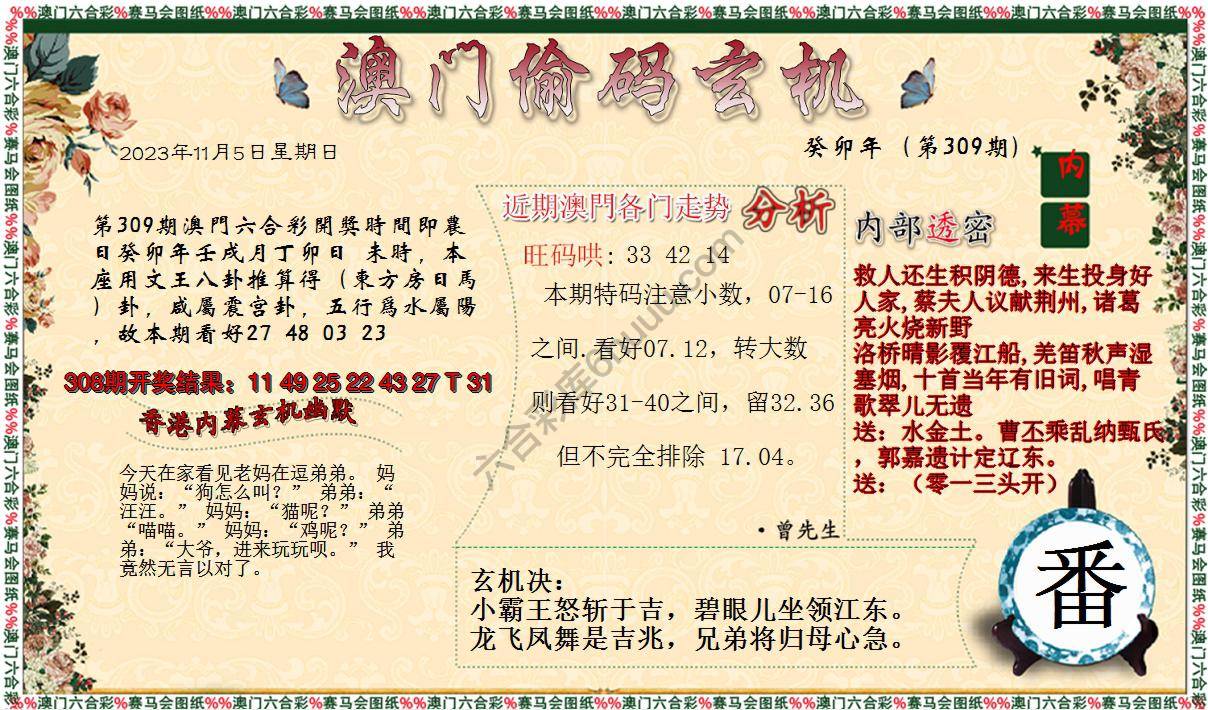 %%澳门六合彩%赛马会图纸%%澳门六合彩%赛马会图纸%%澳门六合彩%赛马会图纸%%澳门六合彩%赛马会图纸%%澳门六合彩%赛马会图纸%%澳门六合彩%赛马会图纸%%
澳门偷码玄机
2023年11月5日星期日
癸卯年（第309期）
内
幕
第309期澳門六合彩開獎時間即農
日癸卯年壬戌月丁卯日 未時，本
座用文王八卦推算得（東方房日馬
）卦，咸屬震宫卦，五行爲水屬陽
，故本期看好27 48 03 23
308期开奖结果：11 49 25 22 43 27 T 31
香港内幕玄机幽默
今天在家看见老妈在逗弟弟。 妈
妈说：“狗怎么叫？” 弟弟：“
汪汪。” 妈妈：“猫呢？” 弟弟
“喵喵。” 妈妈：“鸡呢？” 弟
弟：“大爷，进来玩玩呗。” 我
竟然无言以对了。
近期澳門各门走势 分析
旺码哄: 33 42 14
本期特码注意小数，07-16
之间.看好07.12，转大数
则看好31-40之间，留32.36
但不完全排除 17.04。
·曾先生
内部透密
救人还生积阴德,来生投身好
人家,蔡夫人议献荆州,诸葛
亮火烧新野
洛桥晴影覆江船,羌笛秋声湿
塞烟,十首当年有旧词,唱青
歌翠儿无遗
送：水金土。曹丕乘乱纳甄氏
，郭嘉遗计定辽东。
送：（零一三头开）
玄机决：
小霸王怒斩于吉，碧眼儿坐领江东。
龙飞凤舞是吉兆，兄弟将归母心急。
番